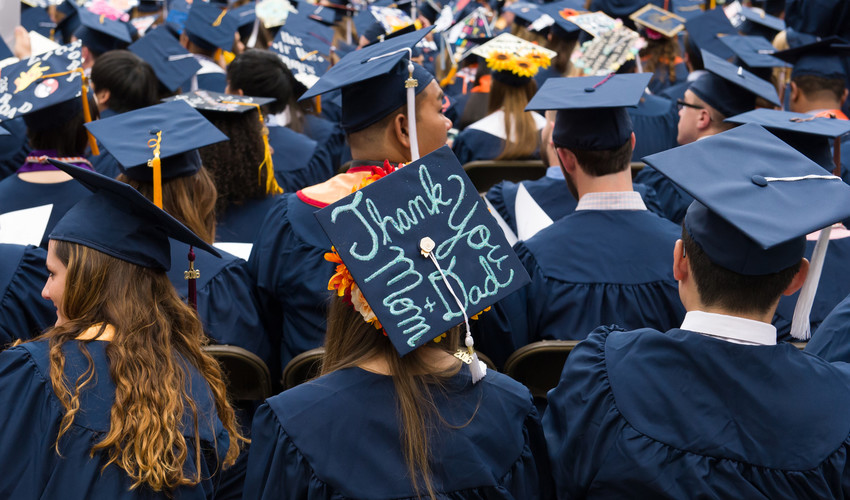 Thank You
Mom + Dad
2016